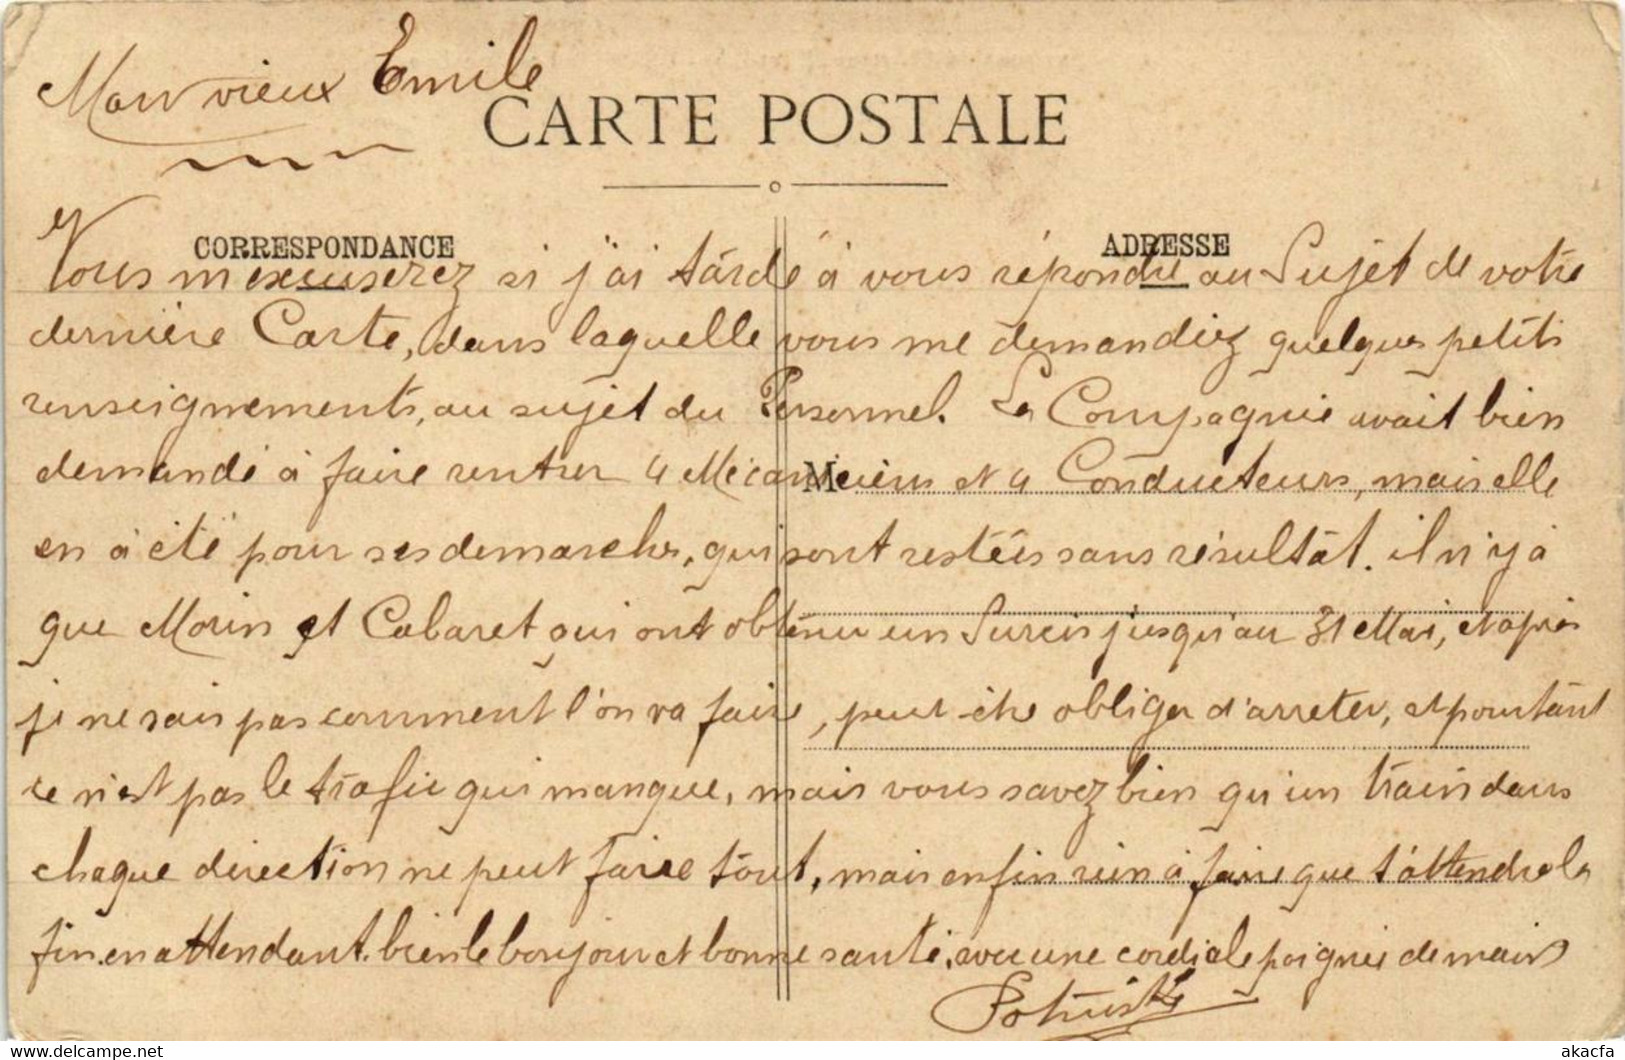 Mon vieux Emile
CARTE POSTALE
CORRESPONDANCE
ADRESSE
Vous m'excuserez si j'ai tardé à vous répondre au Sujet de votre
dernière Carte, dans laquelle vous me demandiez quelques petits
renseignements, au sujet du Personnel. La Compagnie avait bien
demandé à faire rentrer 4 Mécaniciens et 4 Conducteurs, mais elle
M
en à été pour ses demarches, qui sont restées sans résultat. il n'y à
que Morin et Cabaret qui ont obtenu un Sursis jusqu'au 31 Mai, et après
je ne sais pas comment l'on va faire, peut-être obliger d'arreter, et pourtant
ce n'est pas le trafic qui manque, mais vous savez bien qu'un train dans
chaque direction ne peut faire tout, mais enfin rien à faire que d'attendre la
fin. en attendant. bien le bonjour et bonne santé, avec une cordiale poignée de mains
akacfa